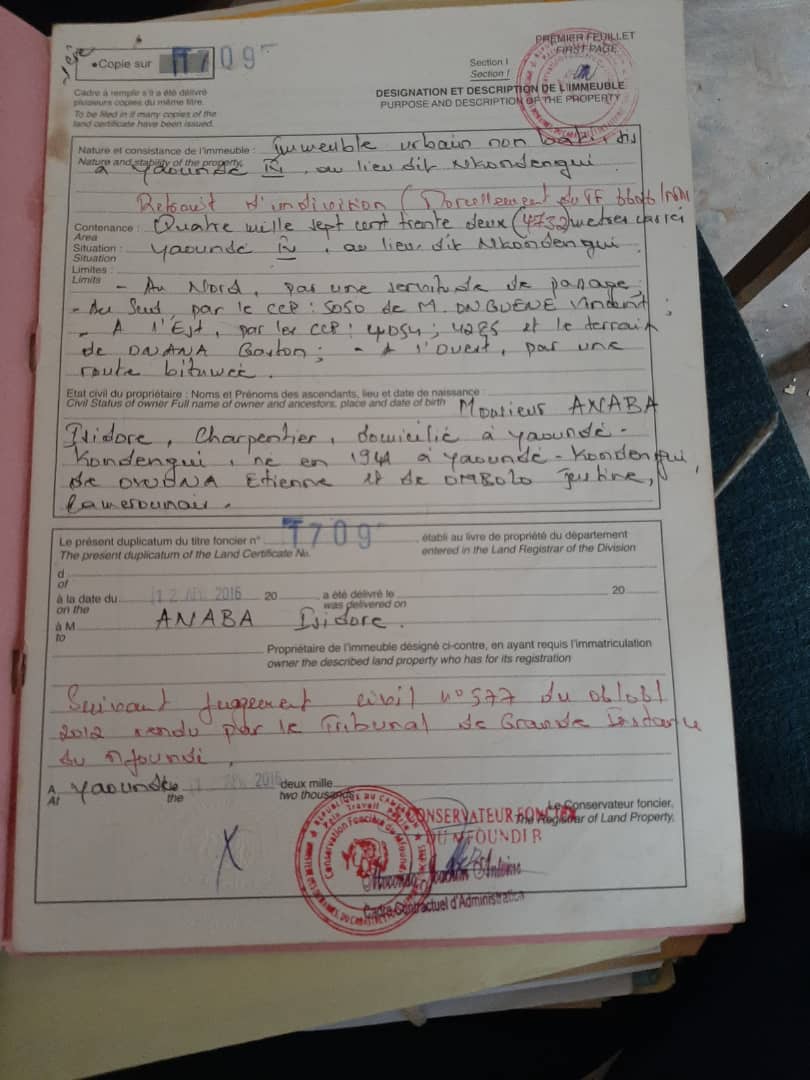 PREMIER FEUILLET
FIRST PAGE
Copie sur
T709
Section I
Section I
DESIGNATION ET DESCRIPTION DE L'IMMEUBLE
PURPOSE AND DESCRIPTION OF THE PROPERTY
Cadre à remplir s'il a été délivré
plusieurs copies du même titre.
To be filed in if many copies of the
land certificate have been issued.
Nature et consistance de l'immeuble : Immeuble urbain non bâti, sis
Nature and stability of the property
à Yaoundé IV, au lieu dit Nkondengui.
Retrait d'indivision (Morcellement du TF
Contenance : Quatre mille sept cent trente deux (4732) metres carrés
Area
Situation : Yaoundé IV, au lieu dit Nkondengui.
Situation
Limites :
Limits
- Au Nord, par une servitude de passage;
- Au Sud, par le CCP : 5050 de M. ONGUENE Vincent;
- A l'Est, par les CCP : 4054; 4285 et le terrain
de ONANA Gaston; - A l'Ouest, par une
route bitumée.
Etat civil du propriétaire : Noms et Prénoms des ascendants, lieu et date de naissance :
Civil Status of owner Full name of owner and ancestors, place and date of birth
Monsieur ANABA
Isidore, Charpentier, domicilié à Yaoundé-
Kondengui, né en 1941 à Yaoundé-Kondengui,
de OWONA Etienne et de OMBOLO Justine,
Camerounais.
Le présent duplicatum du titre foncier n° T709 établi au livre de propriété du département
The present duplicatum of the Land Certificate No. entered in the Land Registrar of the Division
d
of
à la date du 12 AVR 2016 20 a été délivré le 20
on the was delivered on
à M ANABA Isidore.
to
Propriétaire de l'immeuble désigné ci-contre, en ayant requis l'immatriculation
owner the described land property who has for its registration
Suivant jugement civil n° 577 du 06/06/
2012 rendu par le Tribunal de Grande Instance
du Mfoundi.
A Yaoundé le 12 AVR 2016 deux mille
At the two thousand
Le Conservateur foncier,
The Registrar of Land Property.
CONSERVATEUR FONCIER
DU MFOUNDI
Joachim Antoine
Cadre Contractuel d'Administration
REPUBLIQUE DU CAMEROUN
Paix Travail Patrie
Conservation Foncière du Mfoundi